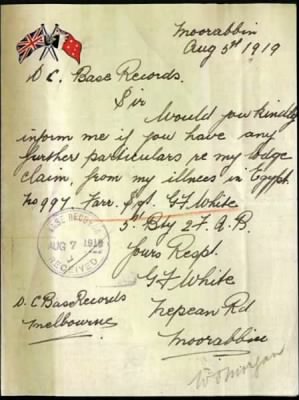 Moorabbin
Aug 5th 1919
D C. Base Records.
Sir
Would you kindly
inform me if you have any
further particulars re my lodge
claim, from my illness in Egypt.
No 997. Farr. Sgt. G F White
5th Bty 2 F. A. B.
Yours Respt.
G F White
Nepean Rd
Moorabbin
D. C Base Records
Melbourne
BASE RECORDS
AUG 7 1919
RECEIVED